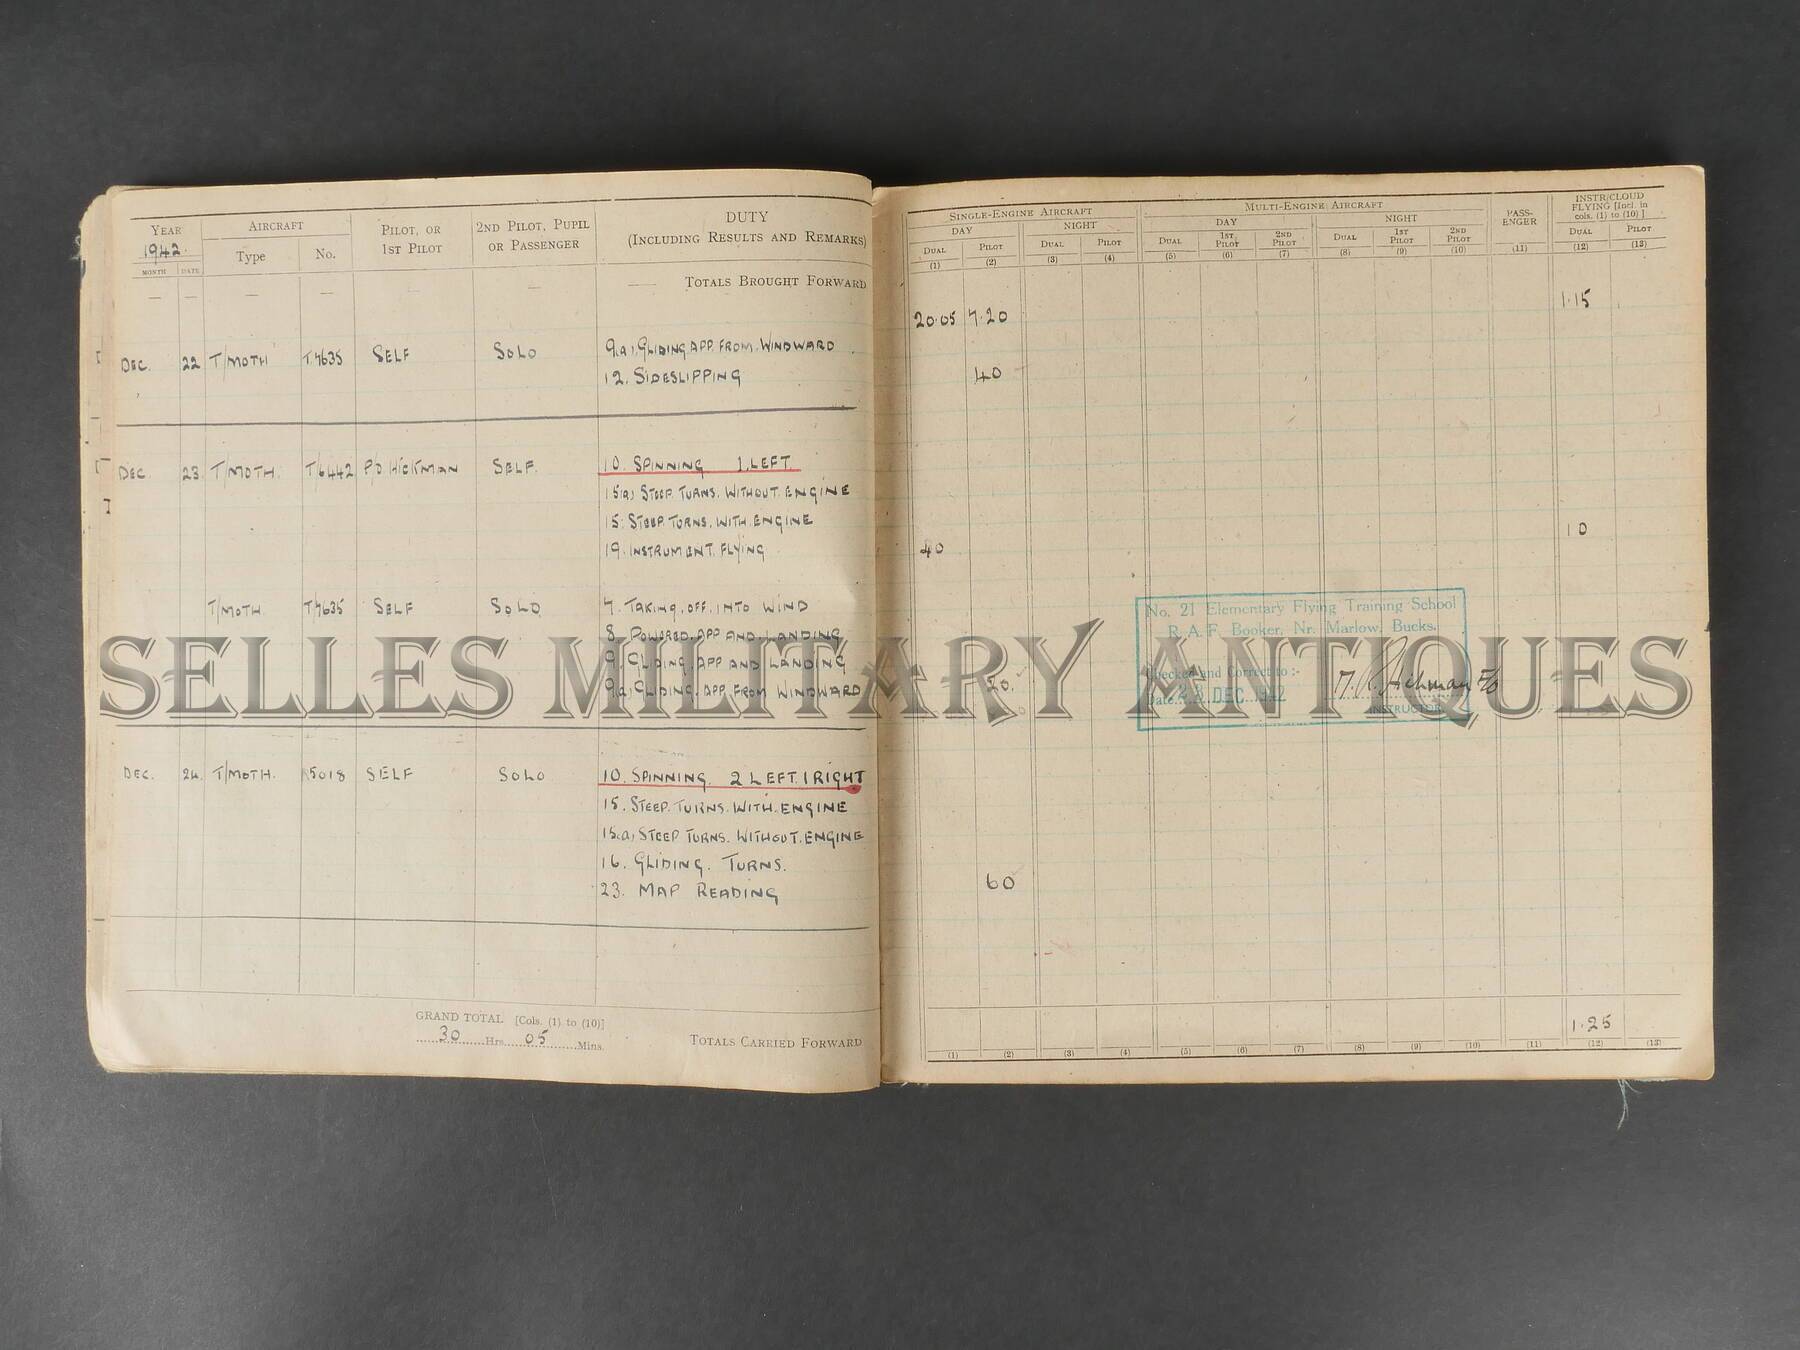 YEAR AIRCRAFT PILOT, OR 1ST PILOT 2ND PILOT, PUPIL OR PASSENGER DUTY (INCLUDING RESULTS AND REMARKS)
1942. Type No.
MONTH DATE
— — — — — — — TOTALS BROUGHT FORWARD
DEC. 22 T/MOTH T.7635 SELF SOLO 9(a), GLIDING APP. FROM. WINDWARD
12. SIDESLIPPING
DEC. 23. T/MOTH. T/6442 P/O HICKMAN SELF. 10. SPINNING 1. LEFT.
15(a) STEEP. TURNS. WITHOUT. ENGINE
15. STEEP. TURNS. WITH. ENGINE
19. INSTRUMENT. FLYING
T/MOTH. T7635 SELF SOLO 7. TAKING. OFF. INTO WIND
8. POWERED. APP AND. LANDING
9. GLIDING. APP AND LANDING
9(a), GLIDING. APP. FROM WINDWARD
DEC. 24. T/MOTH. 5018 SELF SOLO 10. SPINNING. 2 LEFT. 1 RIGHT
15. STEEP. TURNS. WITH. ENGINE
15.(a), STEEP TURNS. WITHOUT. ENGINE
16. GLIDING. TURNS.
23. MAP READING
GRAND TOTAL [Cols. (1) to (10)]
30 Hrs. 05 Mins.
TOTALS CARRIED FORWARD
SINGLE-ENGINE AIRCRAFT MULTI-ENGINE AIRCRAFT PASS-ENGER INSTR/CLOUD FLYING [Incl. in cols. (1) to (10)]
DAY NIGHT DAY NIGHT
DUAL PILOT DUAL PILOT DUAL 1ST PILOT 2ND PILOT DUAL 1ST PILOT 2ND PILOT DUAL PILOT
(1) (2) (3) (4) (5) (6) (7) (8) (9) (10) (11) (12) (13)
20.05 7.20 1.15
40
40 10
No. 21 Elementary Flying Training School
R.A.F. Booker, Nr. Marlow, Bucks.
Checked and Correct to :-
Date 23 DEC 1942
INSTRUCTOR
20.
60
1.25
(1) (2) (3) (4) (5) (6) (7) (8) (9) (10) (11) (12) (13)
SELLES MILITARY ANTIQUES